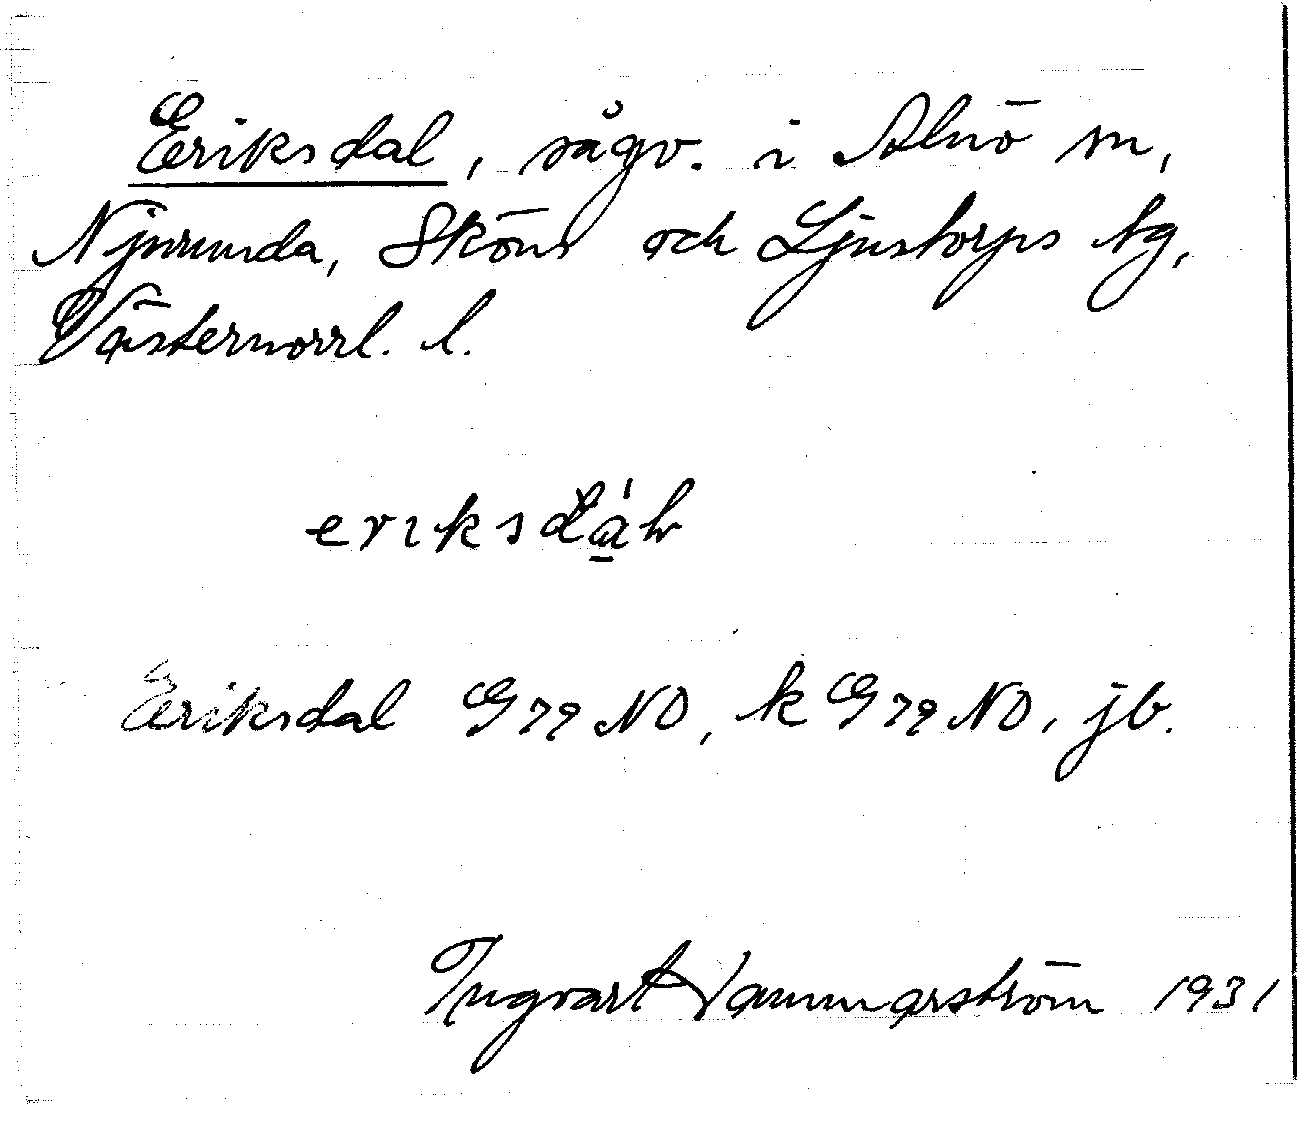 Eriksdal, sågv. i Alnö sn,
Njurunda, Sköns och Ljustorps tg,
Västernorrl. l.
eriksdá̱l
Eriksdal G79 NO, k G79 NO, jb.
Ingvart Hammarström 1931